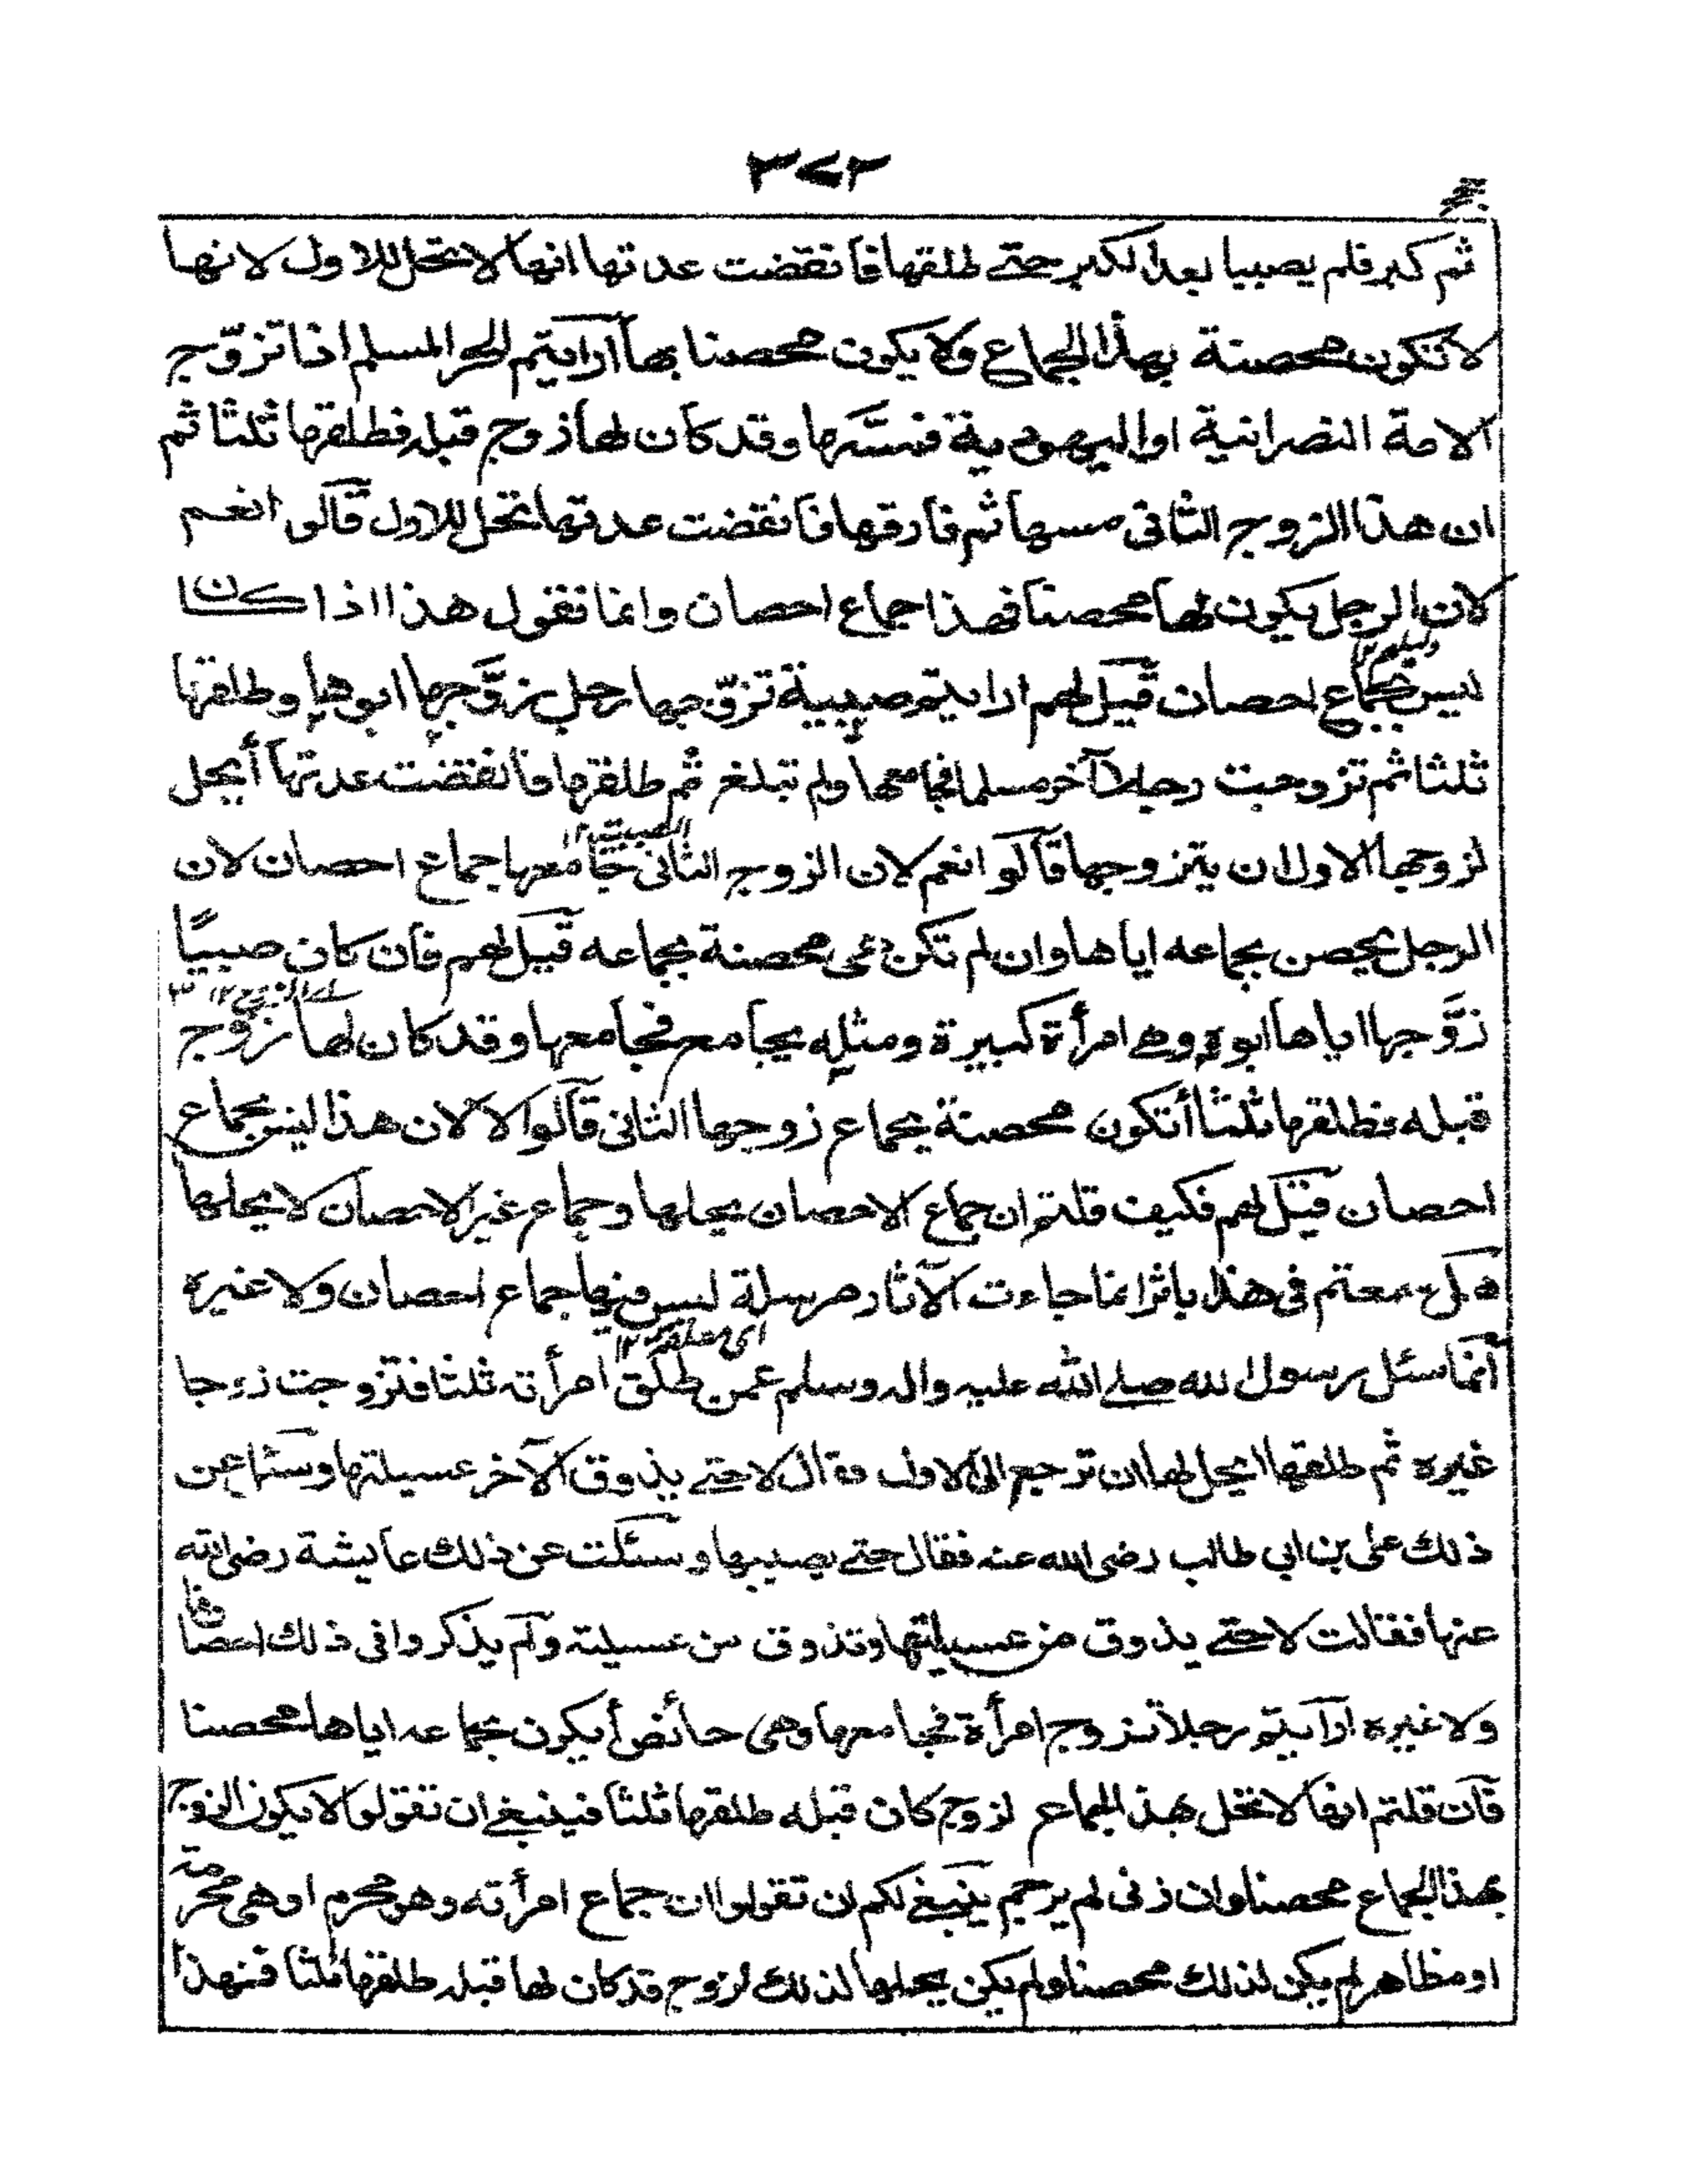 ٣٧٢
ثم كبر فلم يصبها بعد الكبر حتے طلقها فانقضت عدتها انها لا تحل للاول لانها
لا تكون محصنة بهذا الجماع ولا يكون محصنا بها أرايتم الحر المسلم اذا تزوّج
الامة النصرانية او اليهودية فمسّها وقد كان لها زوج قبله فطلقها ثلثا ثم
ان هذا الزوج الثانى مسها ثم فارقها فانقضت عدتها تحل للاول قالوا نعم
لان الرجل يكون لها محصنا فهذا جماع احصان وانما نقول هذا اذا كان
ليس بجماع احصان قيل لهم ارايتم صبية تزوّجها رجل زوَّجها ابوها وطلقها
ثلثا ثم تزوجت رجلا آخر مسلما فجامعها ولم تبلغ ثم طلقها فانقضت عدتها أيحل
لزوجها الاول ان يتزوجها قالوا نعم لان الزوج الثانى جامعها جماع احصان لان
الرجل يحصن بجماعه اياها وان لم تكن هى محصنة بجماعه قيل لهم فان كان صبيًا
زوَّجها اياها ابوه وهے امرأة كبيرة ومثله يجامع فجامعها وقد كان لها زوج
قبله فطلقها ثلثا أتكون محصنة بجماع زوجها الثانى قالوا لا لان هذا ليس بجماع
احصان قيل لهم فكيف قلتم ان جماع الاحصان يحلها وجماع غير الاحصان لا يحلها
هل سمعتم فى هذا باثر انما جاءت الآثار مرسلة ليس فيها جماع احصان ولا غيره
اى مطلقة ١٢
انما سئل رسول الله صلے الله عليه واله وسلم عمن طلق امرأته ثلثا فتزوجت زوجا
غيره ثم طلقها ايحل لها ان ترجع الى الاول فقال لا حتے يذوق الآخر عسيلتها وسئل عن
ذلك على بن ابى طالب رضى الله عنه فقال حتے يصيبها وسئلت عن ذلك عايشة رضى الله
عنها فقالت لا حتے يذوق من عسيلتها وتذوق من عسيلته ولم يذكروا فى ذلك احصانا
ولا غيره ارأيتم رجلا تزوج امرأة فجامعها وهى حائض أيكون بجماعه اياها محصنا
فان قلتم انها لا تحل بهذا الجماع لزوج كان قبله طلقها ثلثا فينبغے ان تقولوا لا يكون الزوج
بهذا الجماع محصنا وان زنى لم يرجم ينبغے لكم ان تقولوا ان جماع امرأته وهو محرم او هى محرمة
او مظاهر لم يكن لذلك محصنا ولم يكن يحلها لذلك لزوج قد كان لها قبله طلقها ثلثا فهذا